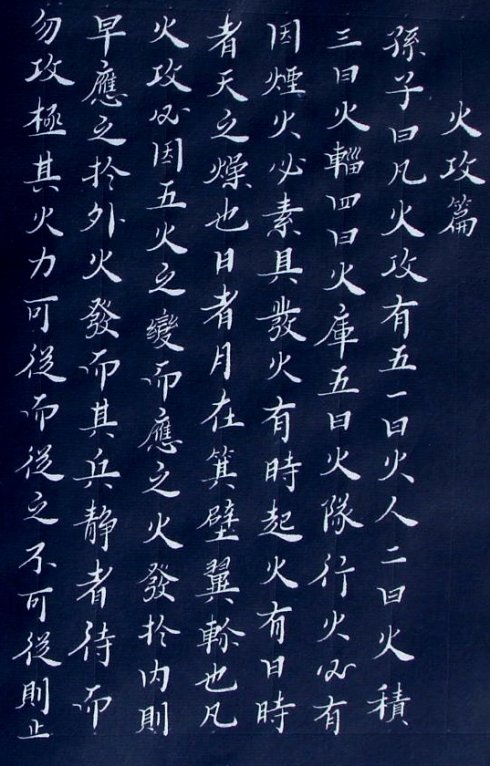 火攻篇
孫子曰凡火攻有五一曰火人二曰火積
三曰火輜四曰火庫五曰火隊行火必有
因煙火必素具發火有時起火有日時
者天之燥也日者月在箕壁翼軫也凡
火攻必因五火之變而應之火發於内則
早應之於外火發而其兵靜者待而
勿攻極其火力可從而從之不可從則止